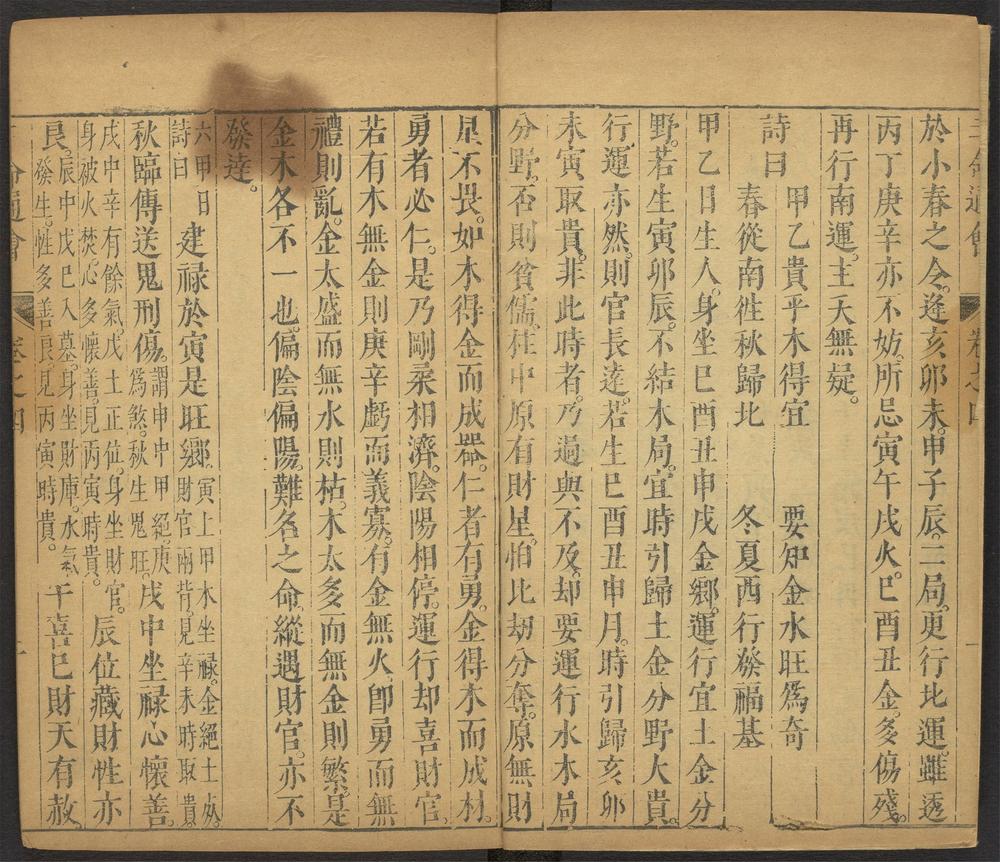 三命通會 卷之四
於小春之令。逢亥卯未。申子辰。二局。更行北運。雖透
丙丁庚辛亦不妨。所忌寅午戌火。巳酉丑金。多傷殘。
再行南運。主夭無疑。
詩曰 甲乙貴乎木得宜 要知金水旺爲奇
春從南徃秋歸北 冬夏西行發福基
甲乙日生人。身坐巳酉丑申戌金鄉。運行宜土金分
野。若生寅卯辰。不結木局。宜時引歸土金分野大貴。
行運亦然。則官長達。若生巳酉丑申月。時引歸亥卯
未寅取貴。非此時者。乃過與不及。却要運行水木局
分野。否則貧儒。柱中原有財星。怕比劫分奪。原無財
星不畏。如木得金而成器。仁者有勇。金得木而成材。
勇者必仁。是乃剛柔相濟。陰陽相停。運行却喜財官。
若有木無金則庚辛虧而義寡。有金無火。卽勇而無
禮則亂。金太盛而無水則枯。木太多而無金則繁。是
金木各不一也。偏陰偏陽。難名之命。縱遇財官。亦不
發達。
六甲日詩曰 建祿於寅是旺鄉。寅上甲木坐祿。金絕土病。財官兩背。見辛未時取貴。
秋臨傳送鬼刑傷。謂申中甲絕。庚爲煞。秋生鬼旺。戌中坐祿心懷善。
戌中辛有餘氣。戊土正位。身坐財官。身被火焚。心多懷善。見丙寅時貴。辰位藏財性亦
良。辰中戊巳入墓。身坐財庫。水氣發生。性多善良。見丙寅時貴。 干喜巳財天有赦。
會通會 卷之四